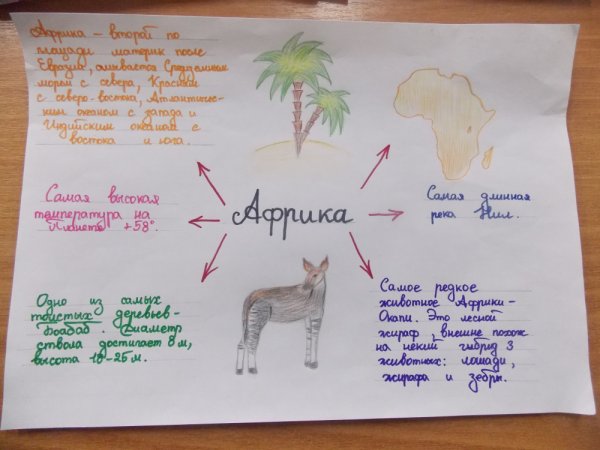 Африка – второй по
площади материк после
Евразии, омывается Средиземным
морем с севера, Красным
с северо-востока, Атлантичес-
ким океаном с запада и
Индийским океаном с
востока и юга.
Самая высокая
температура на
планете +58°.
Африка
Самая длинная
река Нил.
Одно из самых
толстых деревьев-
баобаб. Диаметр
ствола достигает 8 м,
высота 18-25 м.
Самое редкое
животное Африки-
Окапи. Это лесной
жираф, внешне похож
на некий гибрид 3
животных: лошади,
жирафа и зебры.